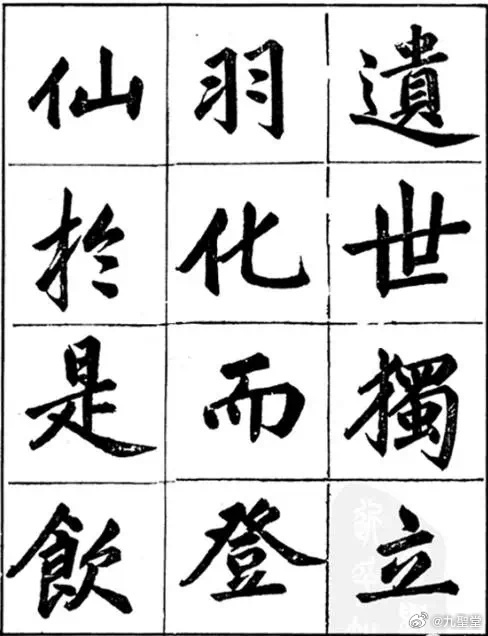 遺世獨立
羽化而登
仙於是飲
@九聖堂